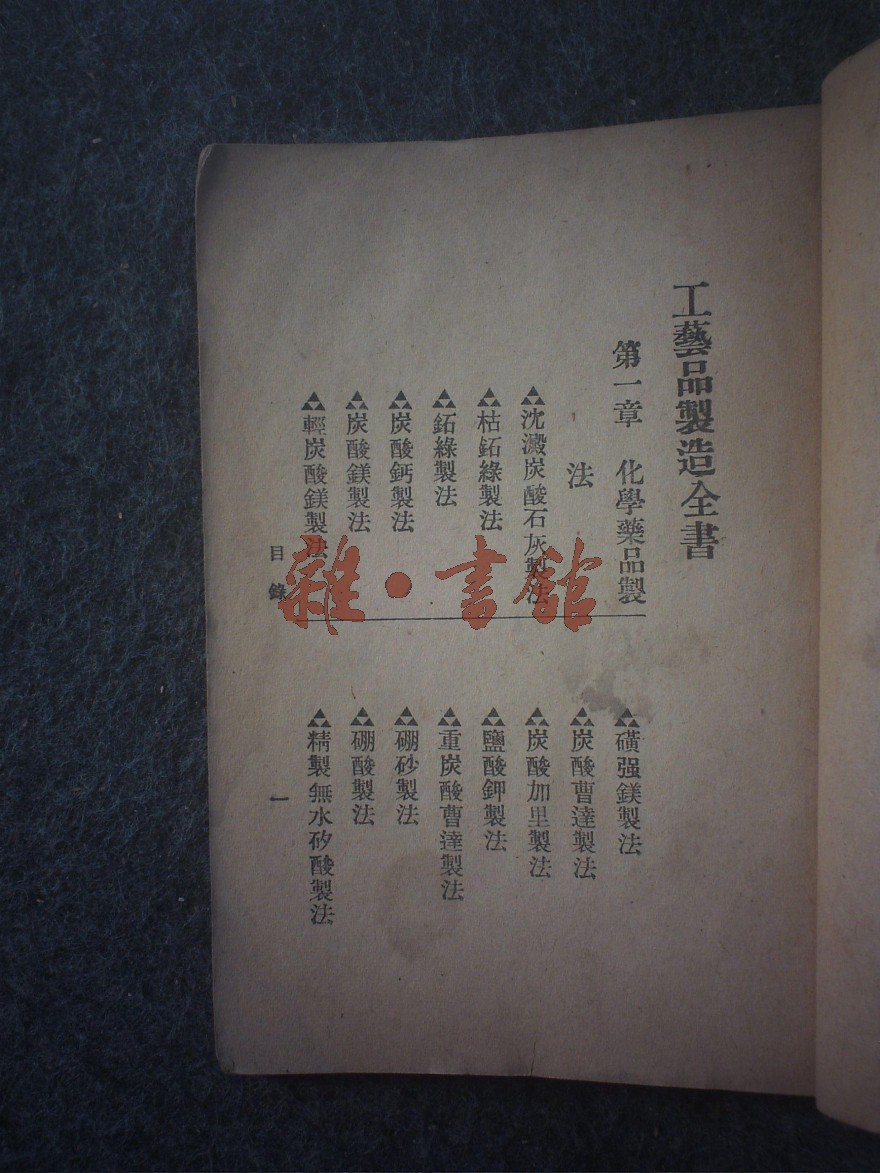 工藝品製造全書
第一章 化學藥品製
法
沈澱炭酸石灰製法
枯鉐綠製法
鉐綠製法
炭酸鈣製法
炭酸鎂製法
輕炭酸鎂製法
磺强鎂製法
炭酸曹達製法
炭酸加里製法
鹽酸鉀製法
重炭酸曹達製法
硼砂製法
硼酸製法
精製無水矽酸製法
目錄
一
雜·書館